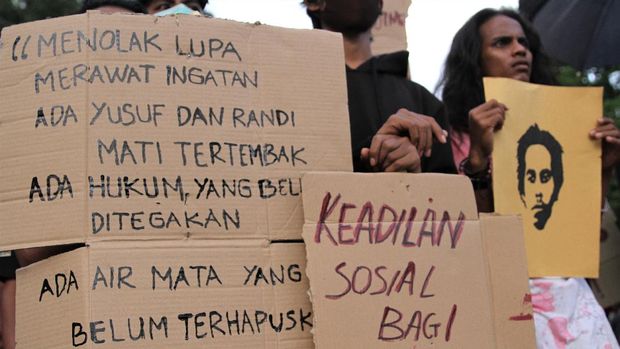 “MENOLAK LUPA
MERAWAT INGATAN
ADA YUSUF DAN RANDI
MATI TERTEMBAK
ADA HUKUM, YANG BELU
DITEGAKAN
ADA AIR MATA YANG
BELUM TERHAPUSK
KEADILAN
SOSIAL
BAGI